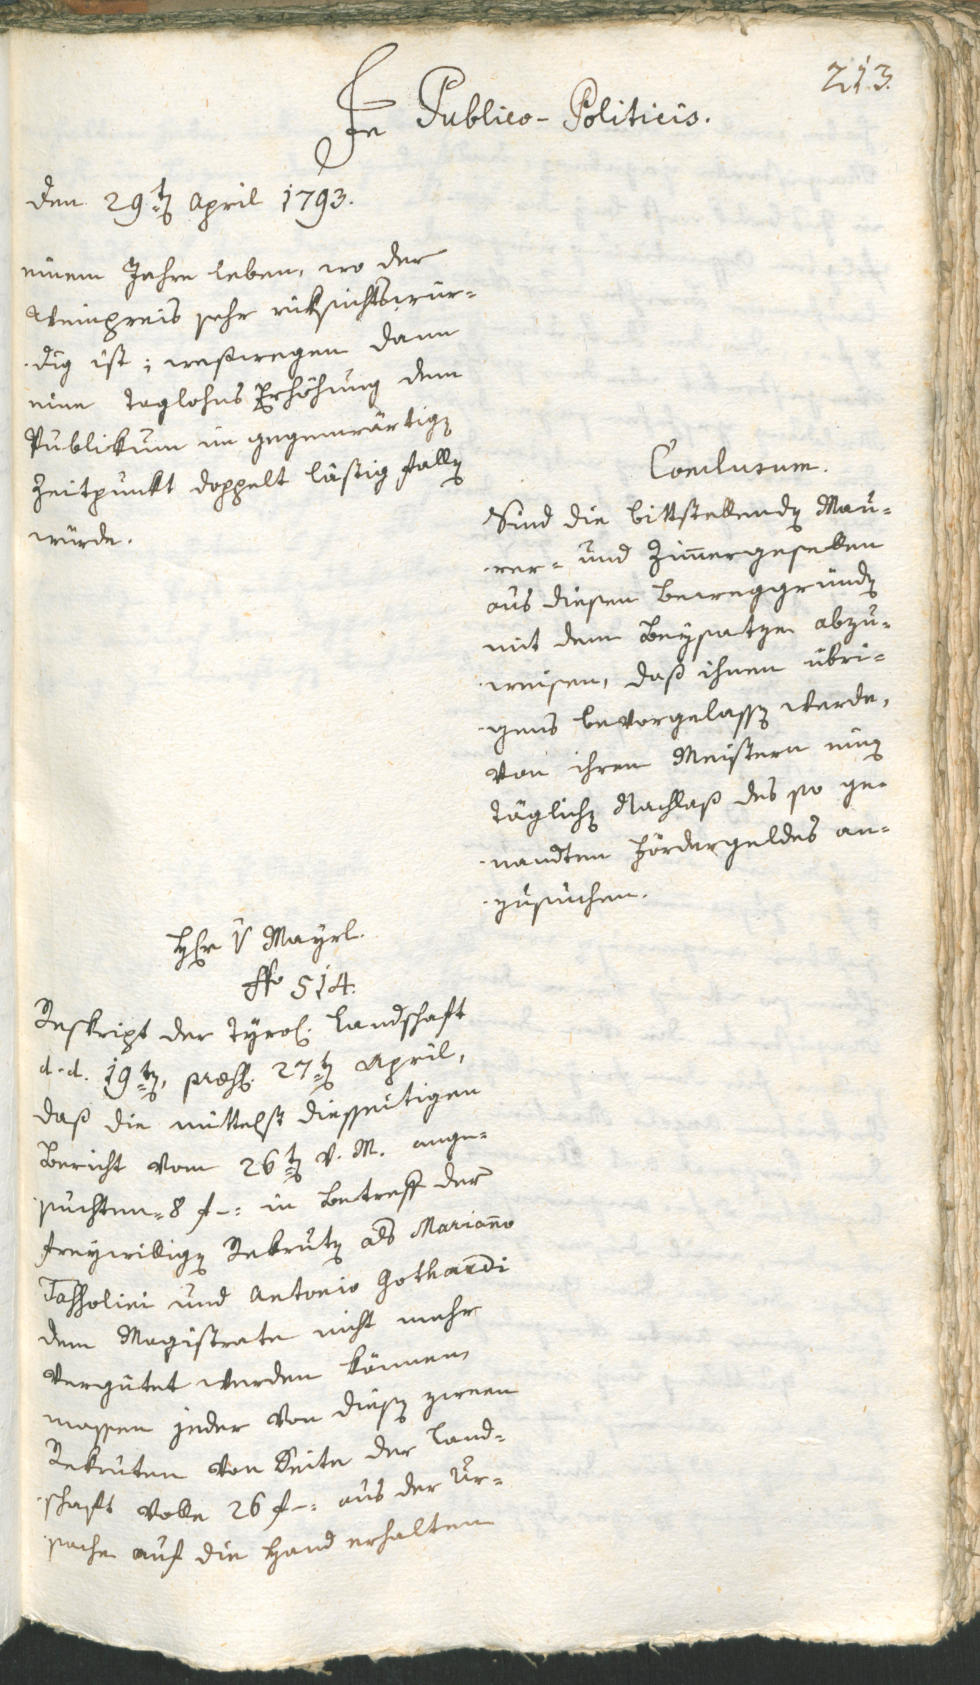 213.
In Publico-Politicis.
den 29ten April 1793.
einem Jahre leben, wo der
Weinpreis sehr rüksichtswür=
dig ist; weßwegen dann
eine Taglohns Erhöhung dem
Publikum im gegenwärtigen
Zeitpunkt doppelt lästig fallen
würde.
Conclusum.
Sind die bittstellenden Mau=
rer= und Zimmergesellen
aus diesen Beweggründen
mit dem Beysatze abzu=
weisen, daß ihnen übri=
gens bevorgelassen werde,
von ihren Meistern einen
täglichen Nachlaß des so ge=
nandten Fördergeldes an=
zusuchen.
Hr v Mayrl.
fo 514.
Reskript der Tyrol. Landschaft
d. d. 19ten, præs. 27ten April,
daß die mittelst diesseitigen
Bericht vom 26ten v. M. ange=
suchten 8 f –: in Betreff der
freywilligen Rekruten als Marianno
und Antonio Gothardi
dem Magistrate nicht mehr
vergütet werden können
massen jeder von diesen zween
Rekruten von Seite der Land=
schaft volle 26 f –: aus der Ur=
sache auf die Hand erhalten